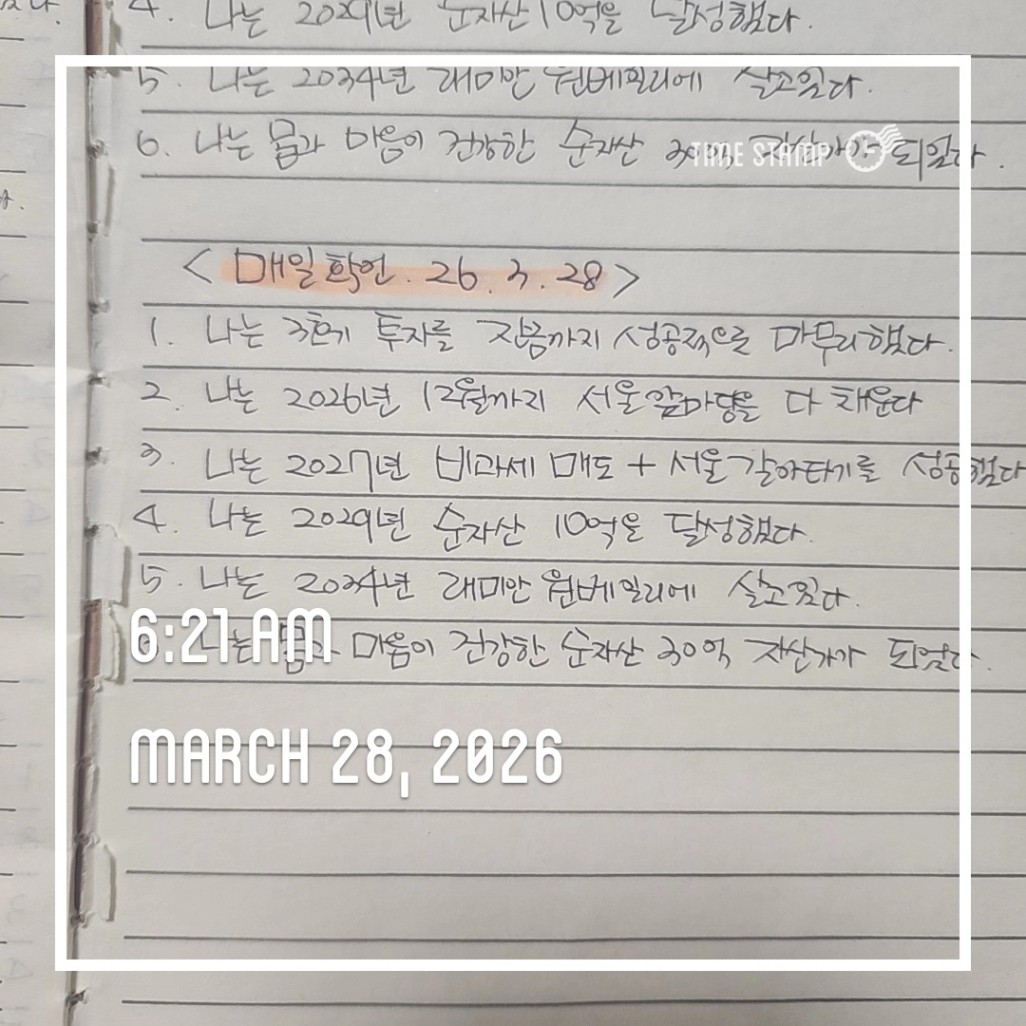 4. 나는 2029년 순자산 10억을 달성했다.
5. 나는 2034년 래미안 원베일리에 살고있다.
6. 나는 몸과 마음이 건강한 순자산 30억 자산가가 되었다.
TIME STAMP
<매일확언. 26. 3. 28>
1. 나는 3호기 투자를 잔금까지 성공적으로 마무리했다.
2. 나는 2026년 12월까지 서울앞마당을 다 채운다
3. 나는 2027년 비과세 매도 + 서울갈아타기를 성공했다
4. 나는 2029년 순자산 10억을 달성했다.
5. 나는 2034년 래미안 원베일리에 살고있다.
6:21 AM
나는 몸과 마음이 건강한 순자산 30억 자산가가 되었다.
MARCH 28, 2026